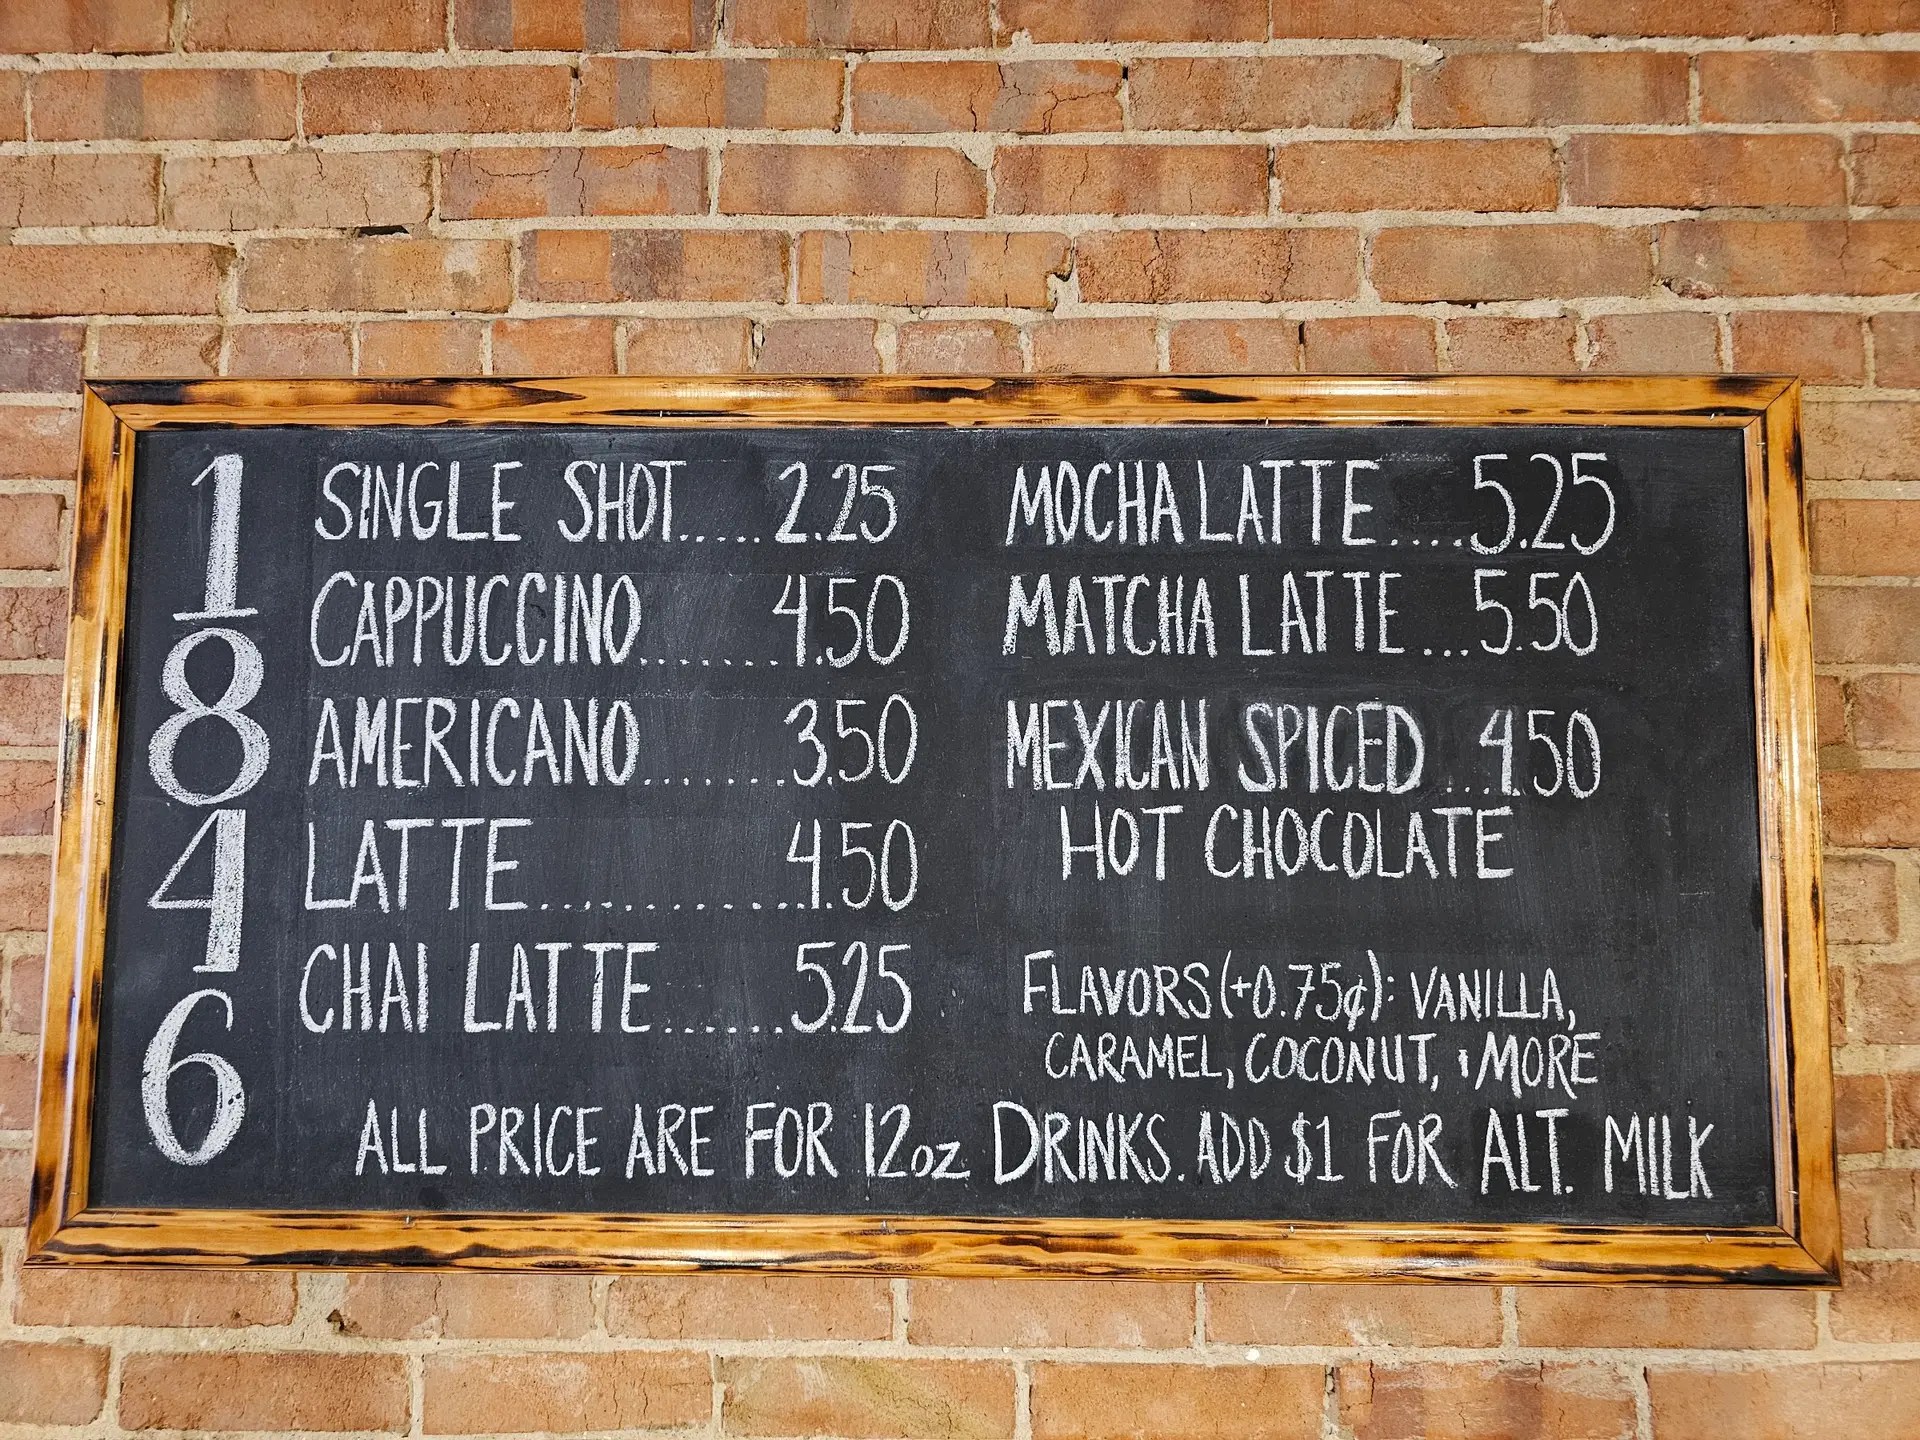 1846
SINGLE SHOT.....2.25
CAPPUCCINO........4.50
AMERICANO.......3.50
LATTE.............4.50
CHAI LATTE......5.25
MOCHA LATTE.....5.25
MATCHA LATTE...5.50
MEXICAN SPICED ...4.50
HOT CHOCOLATE
FLAVORS (+0.75¢): VANILLA,
CARAMEL, COCONUT, & MORE
ALL PRICE ARE FOR 12oz DRINKS. ADD $1 FOR ALT. MILK